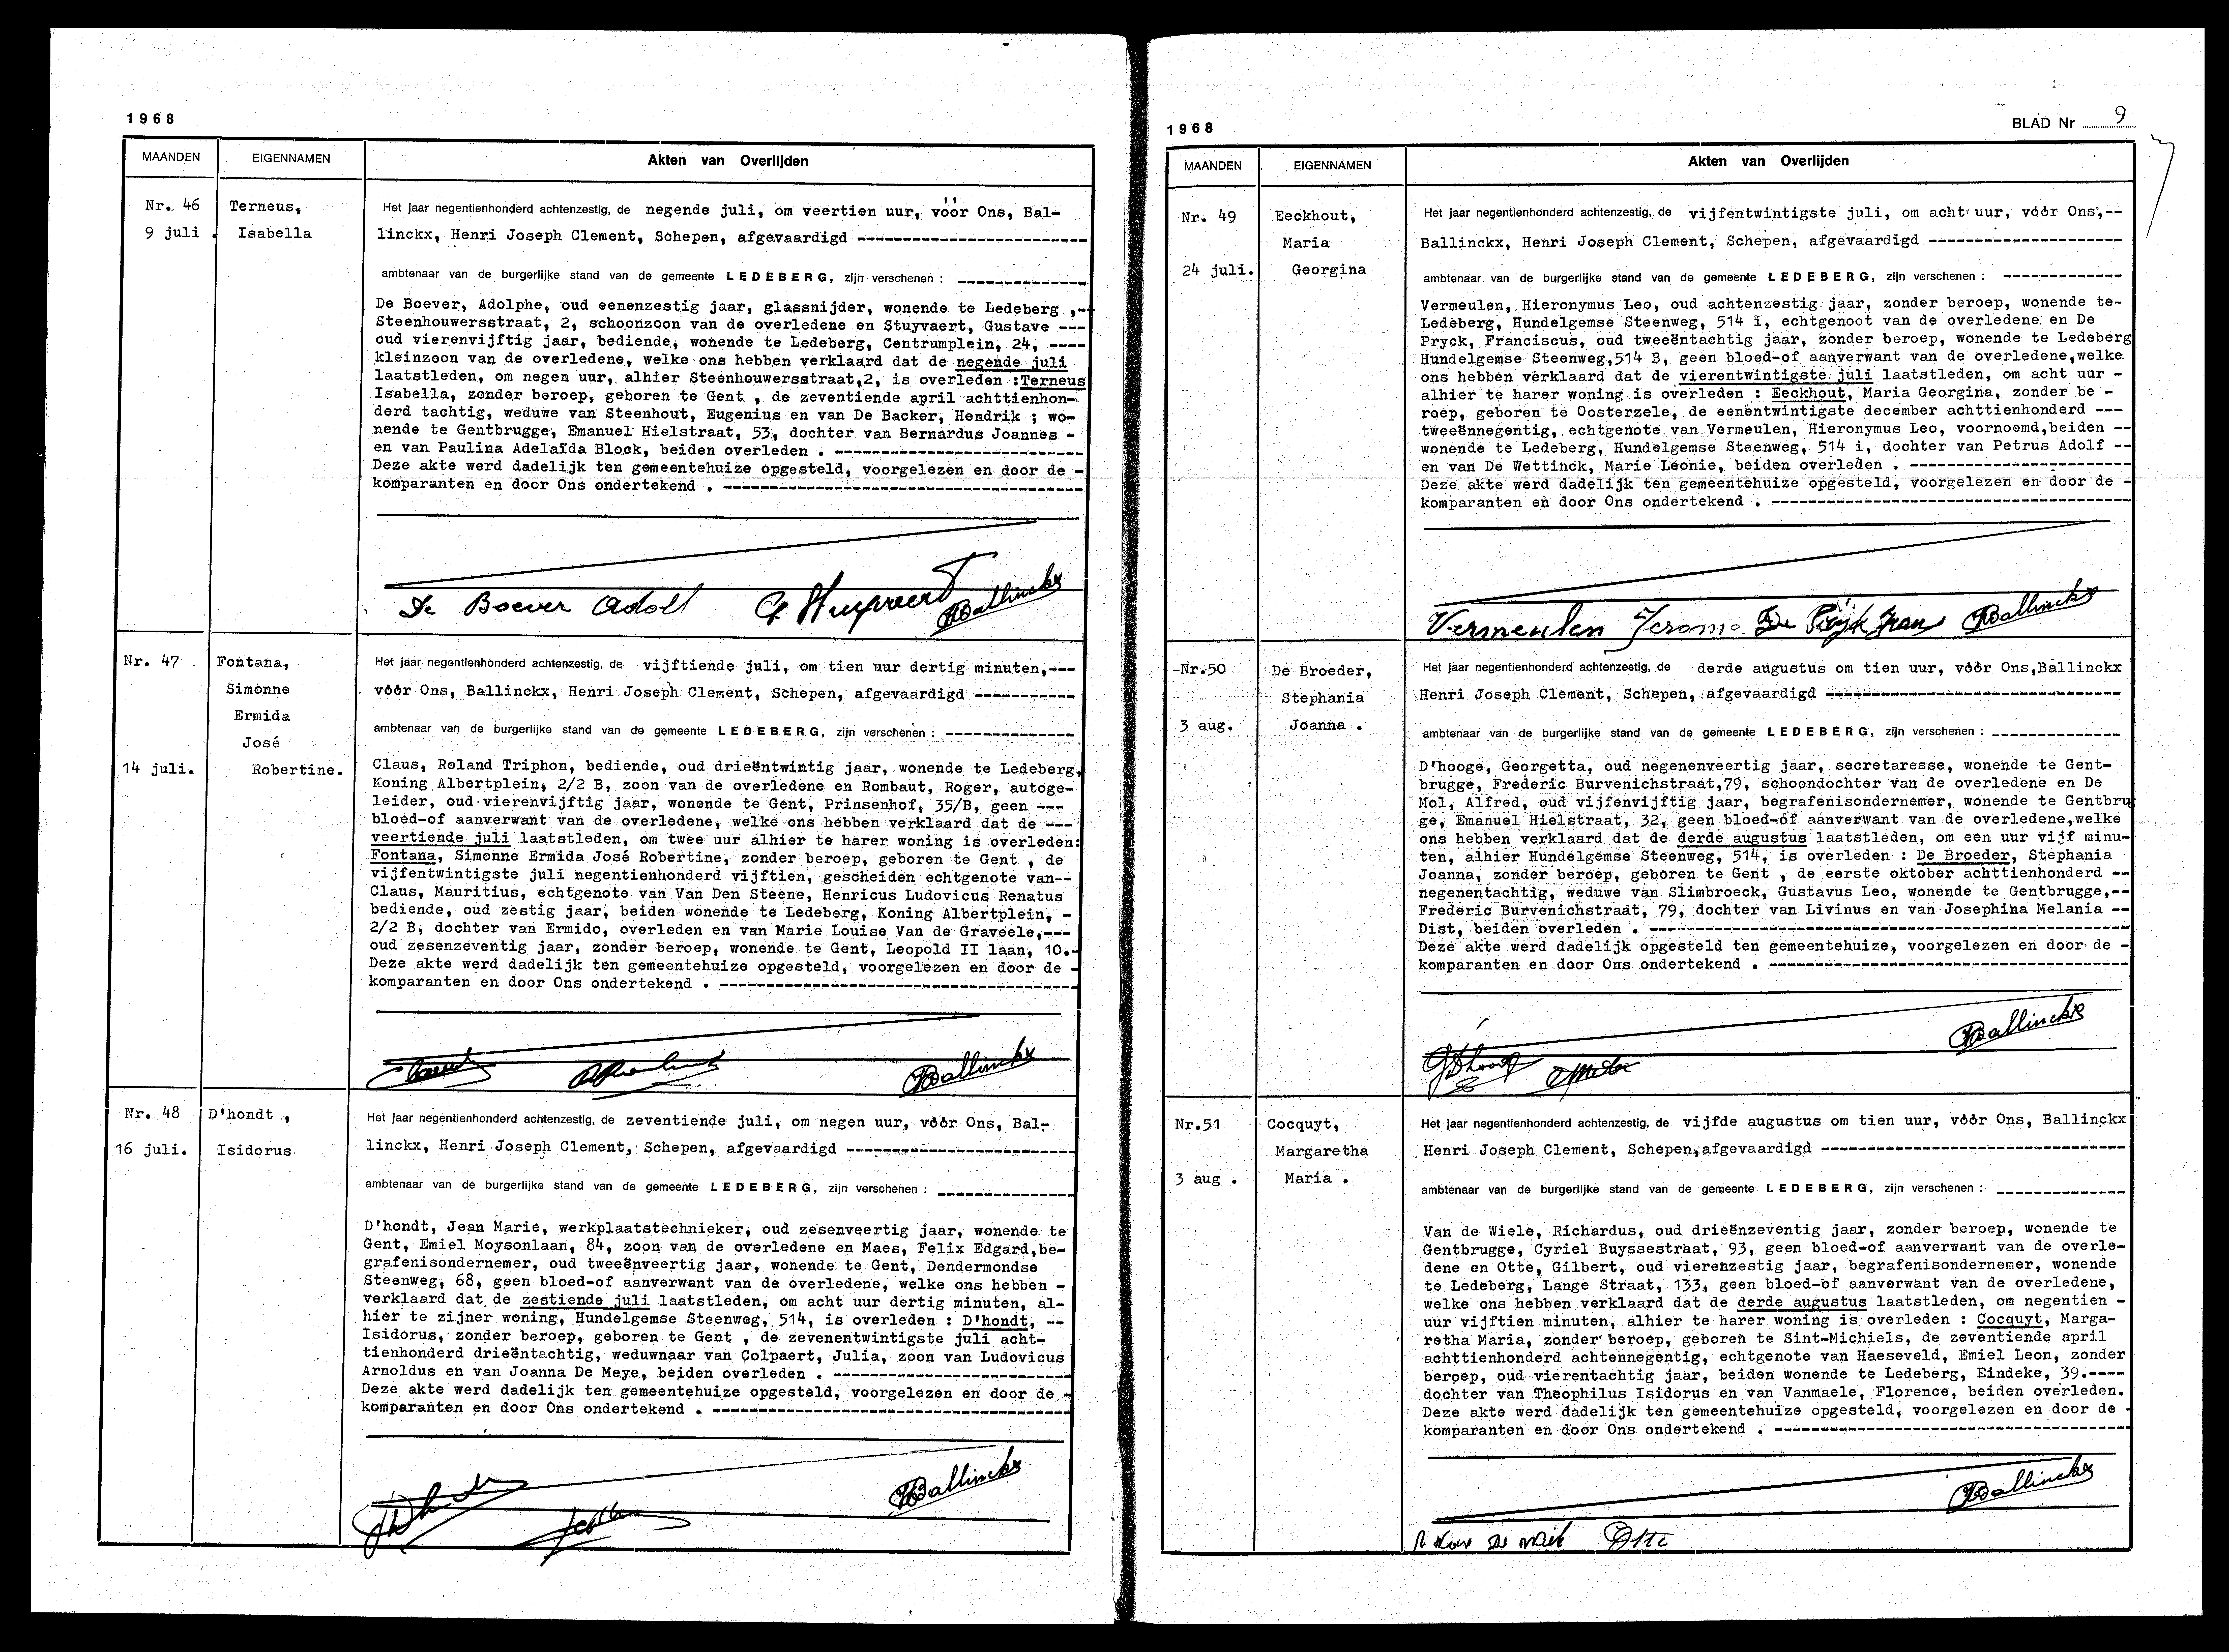 1968
MAANDEN
EIGENNAMEN
Akten van Overlijden
Nr. 46
9 juli .
Terneus,
Isabella
Het jaar negentienhonderd achtenzestig, de negende juli, om veertien uur, vóór Ons, Bal-
linckx, Henri Joseph Clement, Schepen, afgevaardigd ------------------------
ambtenaar van de burgerlijke stand van de gemeente LEDEBERG, zijn verschenen : -------------
De Boever, Adolphe, oud eenenzestig jaar, glassnijder, wonende te Ledeberg ,--
Steenhouwersstraat, 2, schoonzoon van de overledene en Stuyvaert, Gustave ---
oud vierenvijftig jaar, bediende, wonende te Ledeberg, Centrumplein, 24, ----
kleinzoon van de overledene, welke ons hebben verklaard dat de negende juli
laatstleden, om negen uur, alhier Steenhouwersstraat,2, is overleden :Terneus
Isabella, zonder beroep, geboren te Gent , de zeventiende april achttienhon-
derd tachtig, weduwe van Steenhout, Eugenius en van De Backer, Hendrik ; wo-
nende te Gentbrugge, Emanuel Hielstraat, 53, dochter van Bernardus Joannes -
en van Paulina Adelaïda Block, beiden overleden . ---------------------------
Deze akte werd dadelijk ten gemeentehuize opgesteld, voorgelezen en door de -
komparanten en door Ons ondertekend . ---------------------------------------
De Boever Adolf G Stuyvaert Ballinckx
Nr. 47
14 juli.
Fontana,
Simonne
Ermida
José
Robertine.
Het jaar negentienhonderd achtenzestig, de vijftiende juli, om tien uur dertig minuten,---
vóór Ons, Ballinckx, Henri Joseph Clement, Schepen, afgevaardigd -----------
ambtenaar van de burgerlijke stand van de gemeente LEDEBERG, zijn verschenen : --------------
Claus, Roland Triphon, bediende, oud drieëntwintig jaar, wonende te Ledeberg,
Koning Albertplein, 2/2 B, zoon van de overledene en Rombaut, Roger, autoge-
leider, oud vierenvijftig jaar, wonende te Gent, Prinsenhof, 35/B, geen ---
bloed-of aanverwant van de overledene, welke ons hebben verklaard dat de ---
veertiende juli laatstleden, om twee uur alhier te harer woning is overleden:
Fontana, Simonne Ermida José Robertine, zonder beroep, geboren te Gent , de
vijfentwintigste juli negentienhonderd vijftien, gescheiden echtgenote van--
Claus, Mauritius, echtgenote van Van Den Steene, Henricus Ludovicus Renatus
bediende, oud zestig jaar, beiden wonende te Ledeberg, Koning Albertplein, -
2/2 B, dochter van Ermido, overleden en van Marie Louise Van de Graveele,---
oud zesenzeventig jaar, zonder beroep, wonende te Gent, Leopold II laan, 10.-
Deze akte werd dadelijk ten gemeentehuize opgesteld, voorgelezen en door de -
komparanten en door Ons ondertekend . ---------------------------------------
Ballinckx
Nr. 48
16 juli.
D'hondt ,
Isidorus
Het jaar negentienhonderd achtenzestig, de zeventiende juli, om negen uur, vóór Ons, Bal-
linckx, Henri Joseph Clement, Schepen, afgevaardigd -------------------------
ambtenaar van de burgerlijke stand van de gemeente LEDEBERG, zijn verschenen : ---------------
D'hondt, Jean Marie, werkplaatstechnieker, oud zesenveertig jaar, wonende te
Gent, Emiel Moysonlaan, 84, zoon van de overledene en Maes, Felix Edgard,be-
grafenisondernemer, oud tweeënveertig jaar, wonende te Gent, Dendermondse
Steenweg, 68, geen bloed-of aanverwant van de overledene, welke ons hebben -
verklaard dat de zestiende juli laatstleden, om acht uur dertig minuten, al-
hier te zijner woning, Hundelgemse Steenweg, 514, is overleden : D'hondt, --
Isidorus, zonder beroep, geboren te Gent , de zevenentwintigste juli acht-
tienhonderd drieëntachtig, weduwnaar van Colpaert, Julia, zoon van Ludovicus
Arnoldus en van Joanna De Meye, beiden overleden . --------------------------
Deze akte werd dadelijk ten gemeentehuize opgesteld, voorgelezen en door de -
komparanten en door Ons ondertekend . ---------------------------------------
Ballinckx
1968
BLAD Nr 9
MAANDEN
EIGENNAMEN
Akten van Overlijden
Nr. 49
24 juli.
Eeckhout,
Maria
Georgina
Het jaar negentienhonderd achtenzestig, de vijfentwintigste juli, om acht uur, vóór Ons,--
Ballinckx, Henri Joseph Clement, Schepen, afgevaardigd ---------------------
ambtenaar van de burgerlijke stand van de gemeente LEDEBERG, zijn verschenen : -------------
Vermeulen, Hieronymus Leo, oud achtenzestig jaar, zonder beroep, wonende te-
Ledeberg, Hundelgemse Steenweg, 514 i, echtgenoot van de overledene en De
Pryck, Franciscus, oud tweeëntachtig jaar, zonder beroep, wonende te Ledeberg
Hundelgemse Steenweg,514 B, geen bloed-of aanverwant van de overledene,welke
ons hebben verklaard dat de vierentwintigste juli laatstleden, om acht uur -
alhier te harer woning is overleden : Eeckhout, Maria Georgina, zonder be -
roep, geboren te Oosterzele, de eenentwintigste december achttienhonderd ---
tweeënnegentig, echtgenote van Vermeulen, Hieronymus Leo, voornoemd,beiden --
wonende te Ledeberg, Hundelgemse Steenweg, 514 i, dochter van Petrus Adolf --
en van De Wettinck, Marie Leonie, beiden overleden . ------------------------
Deze akte werd dadelijk ten gemeentehuize opgesteld, voorgelezen en door de -
komparanten en door Ons ondertekend . ---------------------------------------
Vermeulen Jerome De Pryck Frans Ballinckx
Nr.50
3 aug.
De Broeder,
Stephania
Joanna .
Het jaar negentienhonderd achtenzestig, de derde augustus om tien uur, vóór Ons,Ballinckx
Henri Joseph Clement, Schepen, afgevaardigd --------------------------------
ambtenaar van de burgerlijke stand van de gemeente LEDEBERG, zijn verschenen : --------------
D'hooge, Georgetta, oud negenenveertig jaar, secretaresse, wonende te Gent-
brugge, Frederic Burvenichstraat,79, schoondochter van de overledene en De
Mol, Alfred, oud vijfenvijftig jaar, begrafenisondernemer, wonende te Gentbrug
ge, Emanuel Hielstraat, 32, geen bloed-of aanverwant van de overledene,welke
ons hebben verklaard dat de derde augustus laatstleden, om een uur vijf minu-
ten, alhier Hundelgemse Steenweg, 514, is overleden : De Broeder, Stephania
Joanna, zonder beroep, geboren te Gent , de eerste oktober achttienhonderd --
negenentachtig, weduwe van Slimbroeck, Gustavus Leo, wonende te Gentbrugge,--
Frederic Burvenichstraat, 79, dochter van Livinus en van Josephina Melania --
Dist, beiden overleden . ----------------------------------------------------
Deze akte werd dadelijk opgesteld ten gemeentehuize, voorgelezen en door de -
komparanten en door Ons ondertekend . ---------------------------------------
Ballinckx
Nr.51
3 aug .
Cocquyt,
Margaretha
Maria .
Het jaar negentienhonderd achtenzestig, de vijfde augustus om tien uur, vóór Ons, Ballinckx
Henri Joseph Clement, Schepen,afgevaardigd ---------------------------------
ambtenaar van de burgerlijke stand van de gemeente LEDEBERG, zijn verschenen : --------------
Van de Wiele, Richardus, oud drieënzeventig jaar, zonder beroep, wonende te
Gentbrugge, Cyriel Buyssestraat, 93, geen bloed-of aanverwant van de overle-
dene en Otte, Gilbert, oud vierenzestig jaar, begrafenisondernemer, wonende
te Ledeberg, Lange Straat, 133, geen bloed-of aanverwant van de overledene,
welke ons hebben verklaard dat de derde augustus laatstleden, om negentien -
uur vijftien minuten, alhier te harer woning is overleden : Cocquyt, Marga-
retha Maria, zonder beroep, geboren te Sint-Michiels, de zeventiende april
achttienhonderd achtennegentig, echtgenote van Haeseveld, Emiel Leon, zonder
beroep, oud vierentachtig jaar, beiden wonende te Ledeberg, Eindeke, 39.----
dochter van Theophilus Isidorus en van Vanmaele, Florence, beiden overleden.
Deze akte werd dadelijk ten gemeentehuize opgesteld, voorgelezen en door de -
komparanten en door Ons ondertekend . ---------------------------------------
Ballinckx
Otte